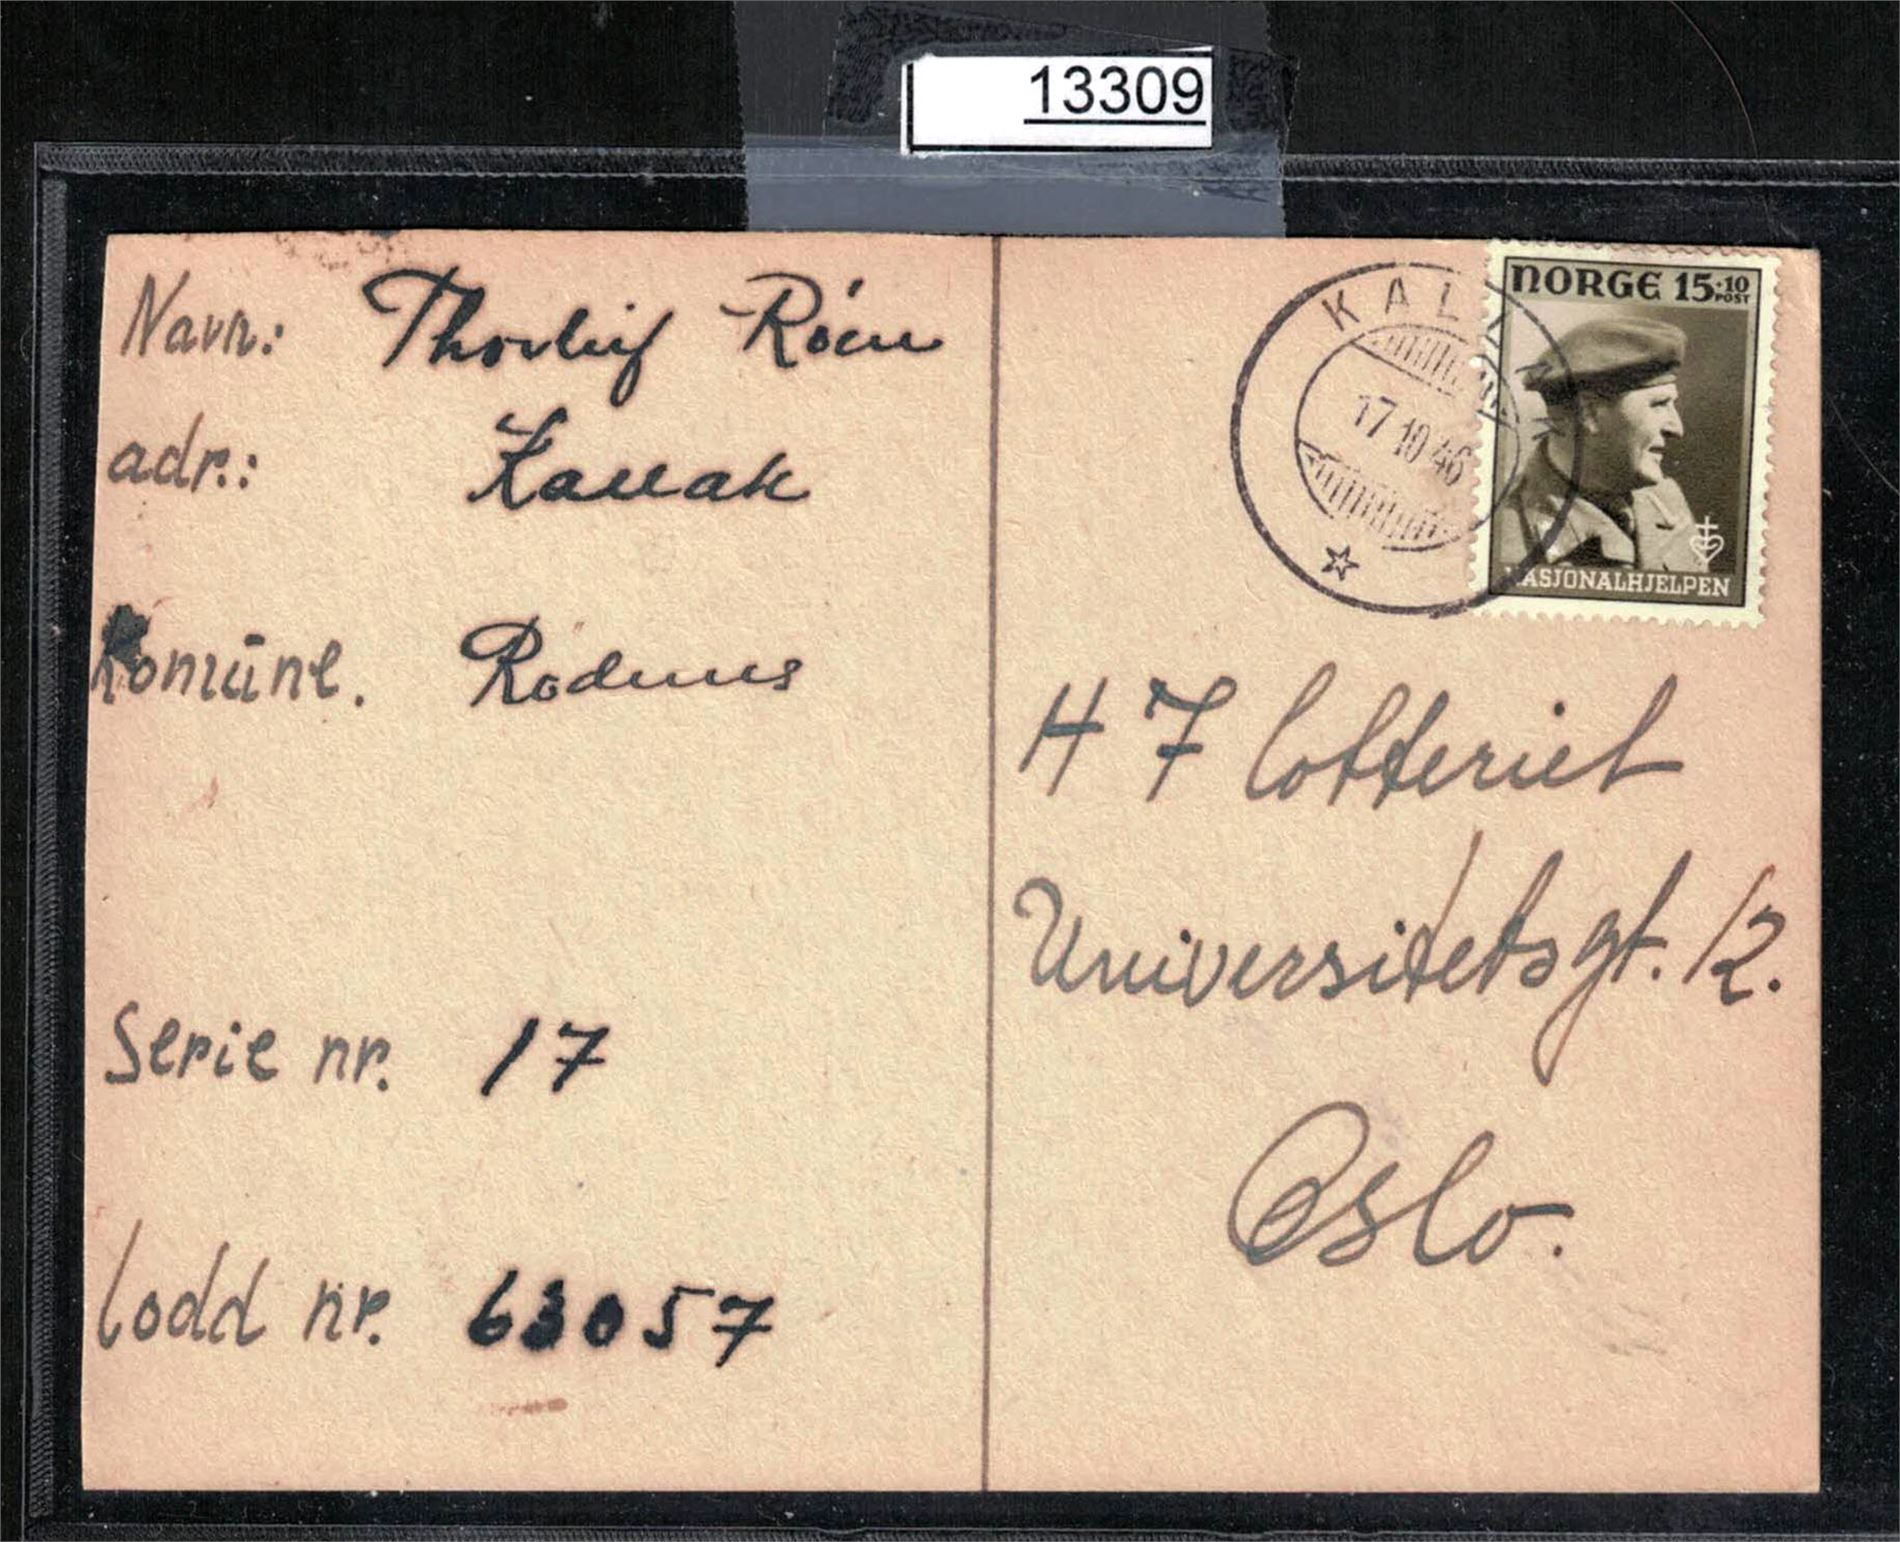 13309
Navn: Thorleif Röen
adr.: Kallak
Komūne. Rödenes
Serie nr. 17
Lodd nr. 63057
KAL
17 10 46
NORGE 15+10
POST
NASJONALHJELPEN
H 7 Lotteriet
Universitetsgt. 12.
Oslo.